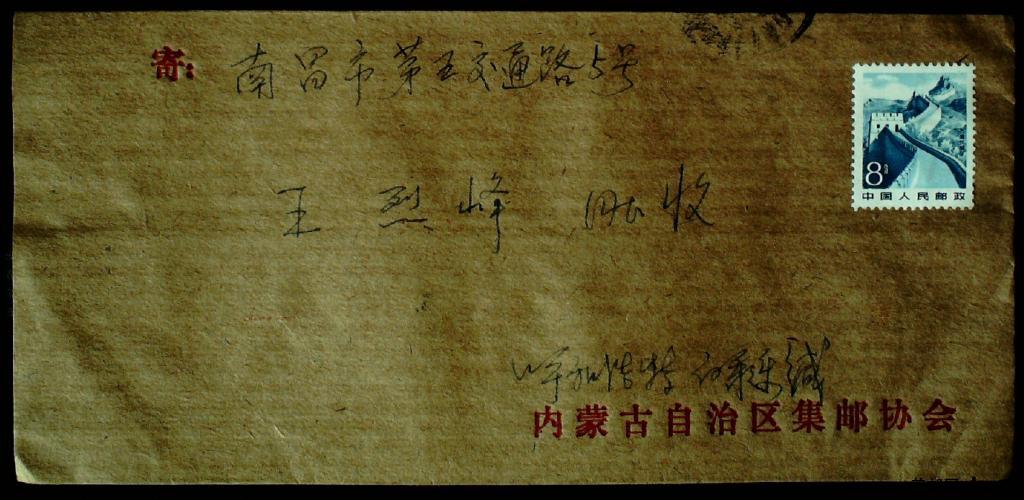 寄: 南昌市第五交通路5号
8分
中国人民邮政
王烈峰 同志收
呼和浩特 缄
内蒙古自治区集邮协会